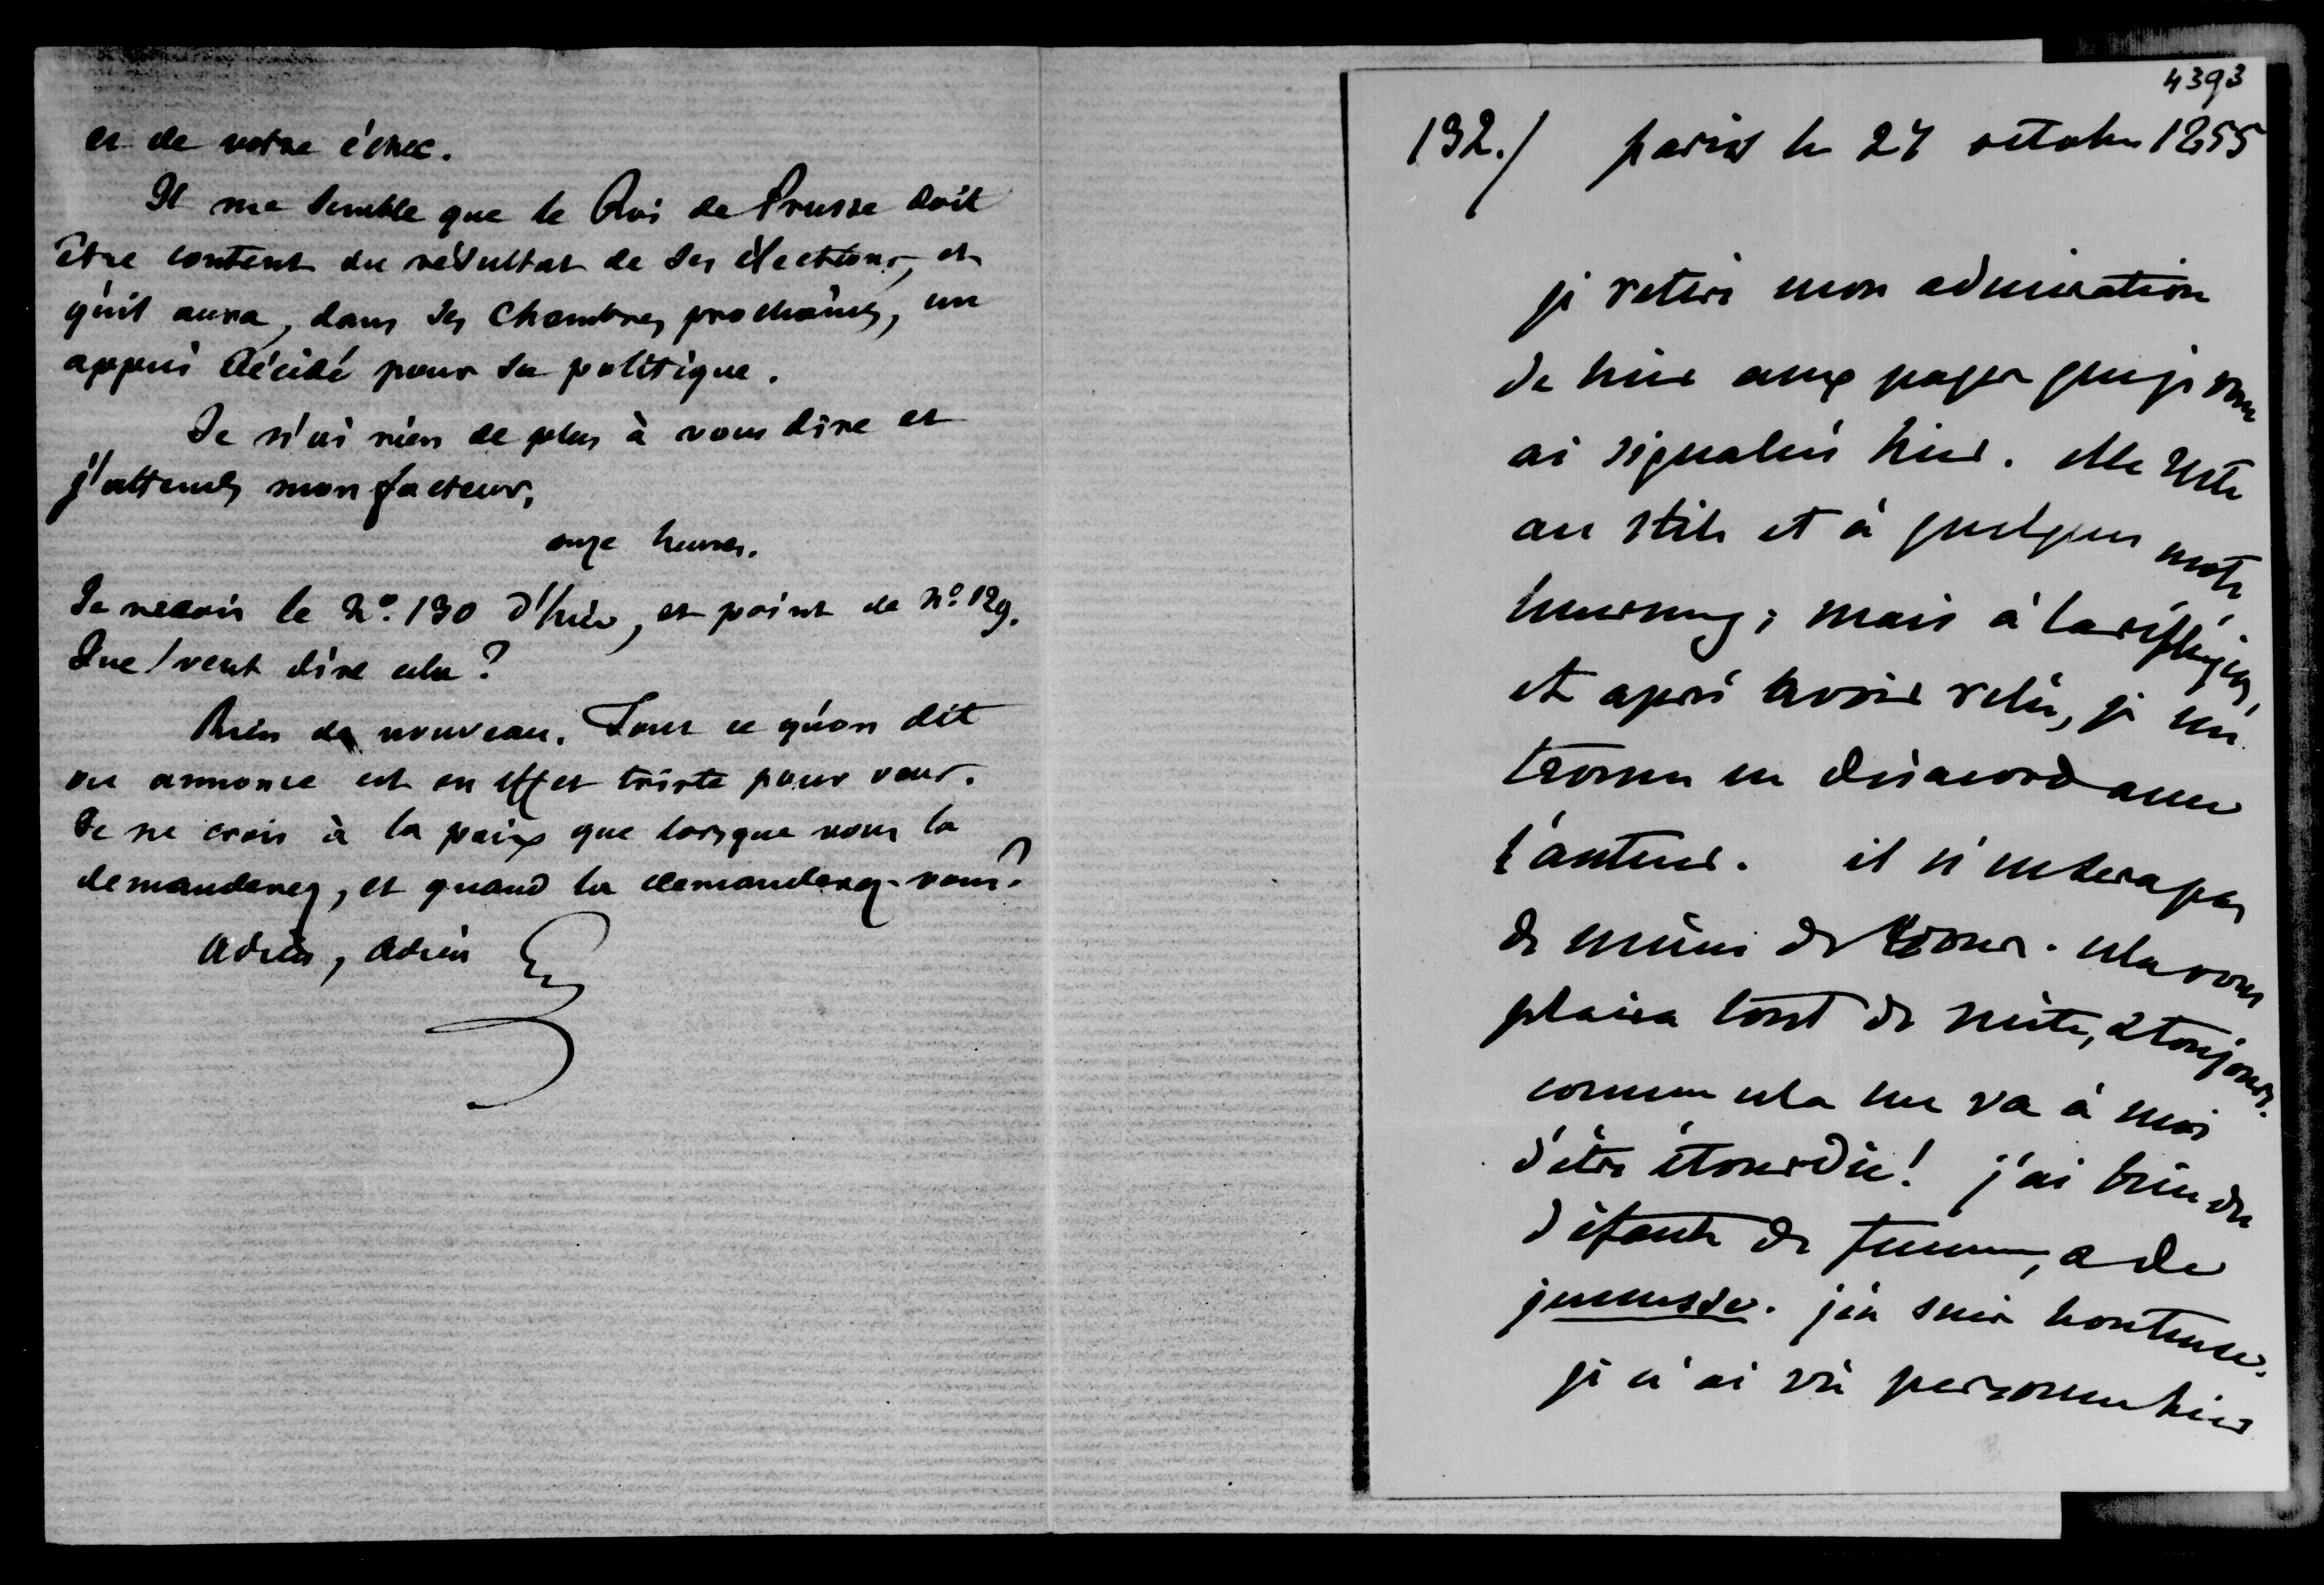 et de votre échec.
Il me semble que le Roi de Prusse doit
être content du résultat de ses élections, et
qu'il aura, dans ses Chambres prochaines, un
appui décidé pour sa politique.
Je n'ai rien de plus à vous dire et
j'attends mon facteur,
onze heures.
Je reçois le No. 130 d'hier, et point de No. 129.
Que veut dire cela ?
Rien de nouveau. Tout ce qu'on dit
ou annonce est en effet triste pour vous.
Je ne crois à la paix que lorsque vous la
demanderez, et quand la demanderez-vous ?
Adieu, Adieu
4393
132./ paris le 27 octobre 1855
je retire mon admiration
de hier aux pages que je vous
ai signalés hier. elle reste
au stile et à quelques mots
heureux; mais à la réflexion,
et après avoir relu, je me
trouve en désaccord avec
l'auteur. il n'en sera pas
de même de vous. cela vous
plaira tout de suite, & toujours.
comme cela me va à moi
d'être étourdie! j'ai bien des
défauts de femme, & de
jeunesse. j'en suis honteuse.
je n'ai vu personne hier